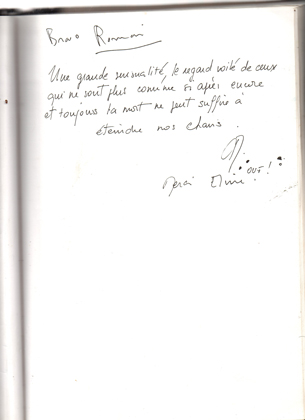 Bravo Romani
Une grande sensualité, le regard voilé de ceux
qui ne sont plus comme si après encore
et toujours la mort ne peut suffire à
éteindre nos chants.
OUF!
Merci